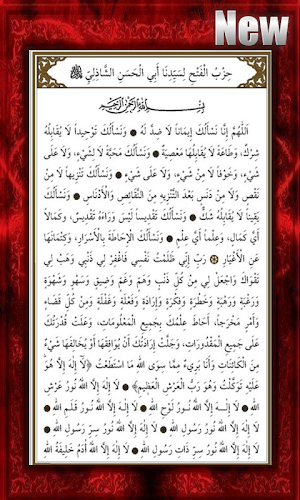 New
حِزْبُ الْفَتْحِ لِسَيِّدِنَا أَبِي الْحَسَنِ الشَّاذِلِيِّ ﷺ
بِسْمِ اللهِ الرَّحْمٰنِ الرَّحِيمِ
اَللّٰهُمَّ إِنَّا نَسْأَلُكَ إِيمَاناً لَا ضِدَّ لَهُ ۞ وَنَسْأَلُكَ تَوْحِيداً لَا يُقَابِلُهُ
شِرْكٌ، وَطَاعَةً لَا يُقَابِلُهَا مَعْصِيَةٌ ۞ وَنَسْأَلُكَ مَحَبَّةً لَا لِشَيْءٍ، وَلَا عَلَى
شَيْءٍ، وَخَوْفاً لَا مِنْ شَيْءٍ، وَلَا عَلَى شَيْءٍ ۞ وَنَسْأَلُكَ تَنْزِيهاً لَا مِنْ
نَقْصٍ وَلَا مِنْ دَنَسٍ بَعْدَ التَّنْزِيهِ مِنَ النَّقَائِصِ وَالْأَدْنَاسِ ۞ وَنَسْأَلُكَ
يَقِيناً لَا يُقَابِلُهُ شَكٌّ ۞ وَنَسْأَلُكَ تَقْدِيساً لَيْسَ وَرَاءَهُ تَقْدِيسٌ، وَكَمَالاً
أَيَّ كَمَالٍ، وَعِلْماً أَيَّ عِلْمٍ ۞ وَنَسْأَلُكَ الْإِحَاطَةَ بِالْأَسْرَارِ، وَكِتْمَانَهَا
عَنِ الْأَغْيَارِ ۞ رَبِّ إِنِّي ظَلَمْتُ نَفْسِي فَاغْفِرْ لِي ذَنْبِي وَهَبْ لِي
تَقْوَاكَ وَاجْعَلْ لِي مِنْ كُلِّ ذَنْبٍ وَهَمٍّ وَغَمٍّ وَضِيقٍ وَسَهْوٍ وَشَهْوَةٍ
وَرَغْبَةٍ وَرَهْبَةٍ وَخَطْرَةٍ وَفِكْرَةٍ وَإِرَادَةٍ وَفَعْلَةٍ وَغَفْلَةٍ وَمِنْ كُلِّ قَضَاءٍ
وَأَمْرٍ مَخْرَجاً، أَحَاطَ عِلْمُكَ بِجَمِيعِ الْمَعْلُومَاتِ، وَعَلَتْ قُدْرَتُكَ
عَلَى جَمِيعِ الْمَقْدُورَاتِ، وَجَلَّتْ إِرَادَتُكَ أَنْ يُوَافِقَهَا أَوْ يُخَالِفَهَا شَيْءٌ
مِنَ الْكَائِنَاتِ وَأَنَا بَرِيءٌ مِمَّا سِوَى اللهِ مَا اسْتَطَعْتُ ﴿لَا إِلٰهَ إِلَّا هُوَ
عَلَيْهِ تَوَكَّلْتُ وَهُوَ رَبُّ الْعَرْشِ الْعَظِيمِ﴾ ۞ لَا إِلٰهَ إِلَّا اللهُ نُورُ عَرْشِ
اللهِ ۞ لَا إِلٰهَ إِلَّا اللهُ نُورُ لَوْحِ اللهِ ۞ لَا إِلٰهَ إِلَّا اللهُ نُورُ قَلَمِ اللهِ ۞
لَا إِلٰهَ إِلَّا اللهُ نُورُ رَسُولِ اللهِ ۞ لَا إِلٰهَ إِلَّا اللهُ نُورُ سِرِّ رَسُولِ اللهِ ۞
لَا إِلٰهَ إِلَّا اللهُ نُورُ سِرِّ ذَاتِ رَسُولِ اللهِ ۞ لَا إِلٰهَ إِلَّا اللهُ آدَمُ خَلِيفَةُ اللهِ